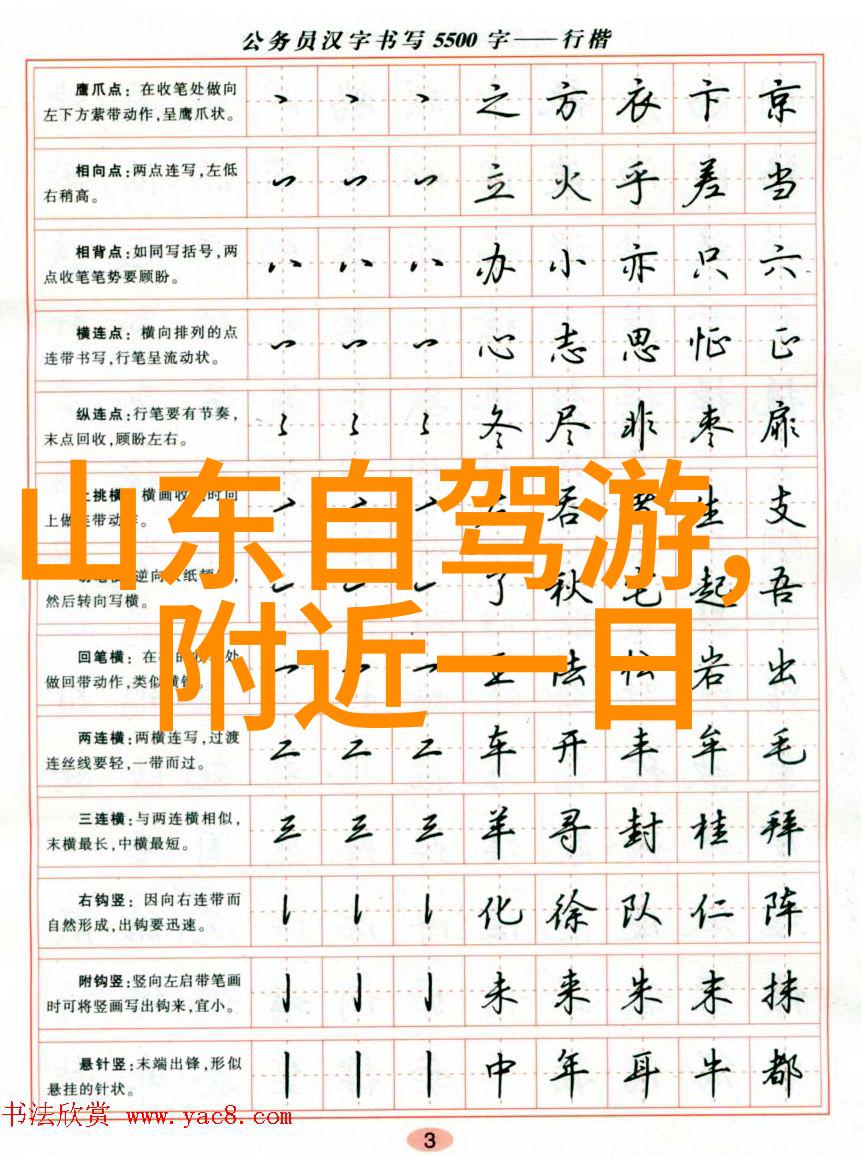 公务员汉字书写 5500 字——行楷
鹰爪点：在收笔处做向
左下方萦带动作，呈鹰爪状。
之 方 衣 卞 京
相向点：两点连写，左低
右稍高。
立 火 乎 差 当
相背点：如同写括号，两
点收笔笔势要顾盼。
办 小 亦 只 六
横连点：横向排列的点
连带书写，行笔呈流动状。
心 志 思 恒 正
纵连点：行笔要有节奏，
末点回收，顾盼左右。
冬 尽 非 枣 扉
上挑横：横画收 时向
上做连带动作。
吞 生 支
山东自驾游，
逆向 纸
然后转向写横。
了 秋 宅 起 吾
附近一日
回笔横：在 处
做回带动作，类似横钩。
岩 出
两连横：两横连写，过渡
连丝线要轻，一带而过。
二 二 二 车 开 丰 牟 毛
三连横：与两连横相似，
末横最长，中横最短。
三 三 三 羊 寻 封 桂 拜
右钩竖：因向右连带而
自然形成，出钩要迅速。
化 徐 队 仁 阵
附钩竖：竖向左启带笔画
时可将竖画写出钩来，宜小。
未 来 朱 末 抹
悬针竖：末端出锋，形似
悬挂的针状。
中 年 耳 牛 都
书法欣赏 www.yac8.com
3